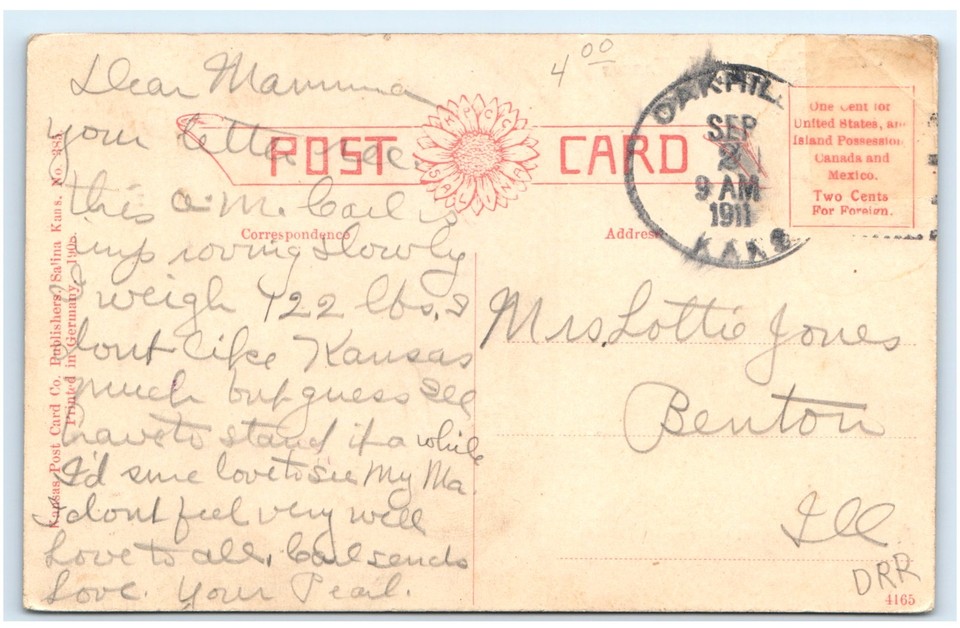 Dear Mamma
your letter rec.
this a.m. Carl is
improving slowly
I weigh 122 lbs. I
dont like Kansas
much but guess Ill
have to stand it a while
I'd sure love to see My Ma.
I dont feel very well
Love to all. Carl sends
Love. Your Pearl.
4 00
POST CARD
M P C C
SALINA
Correspondence
Address
OAKHILL
SEP
2
9 AM
1911
KANS
One Cent for
United States, an
Island Possession
Canada and
Mexico.
Two Cents
For Foreign.
Mrs. Lottie Jones
Benton
Ill
DRR
4165
Kansas Post Card Co. Publishers. Salina Kans. No. 385
Printed in Germany, 1908.